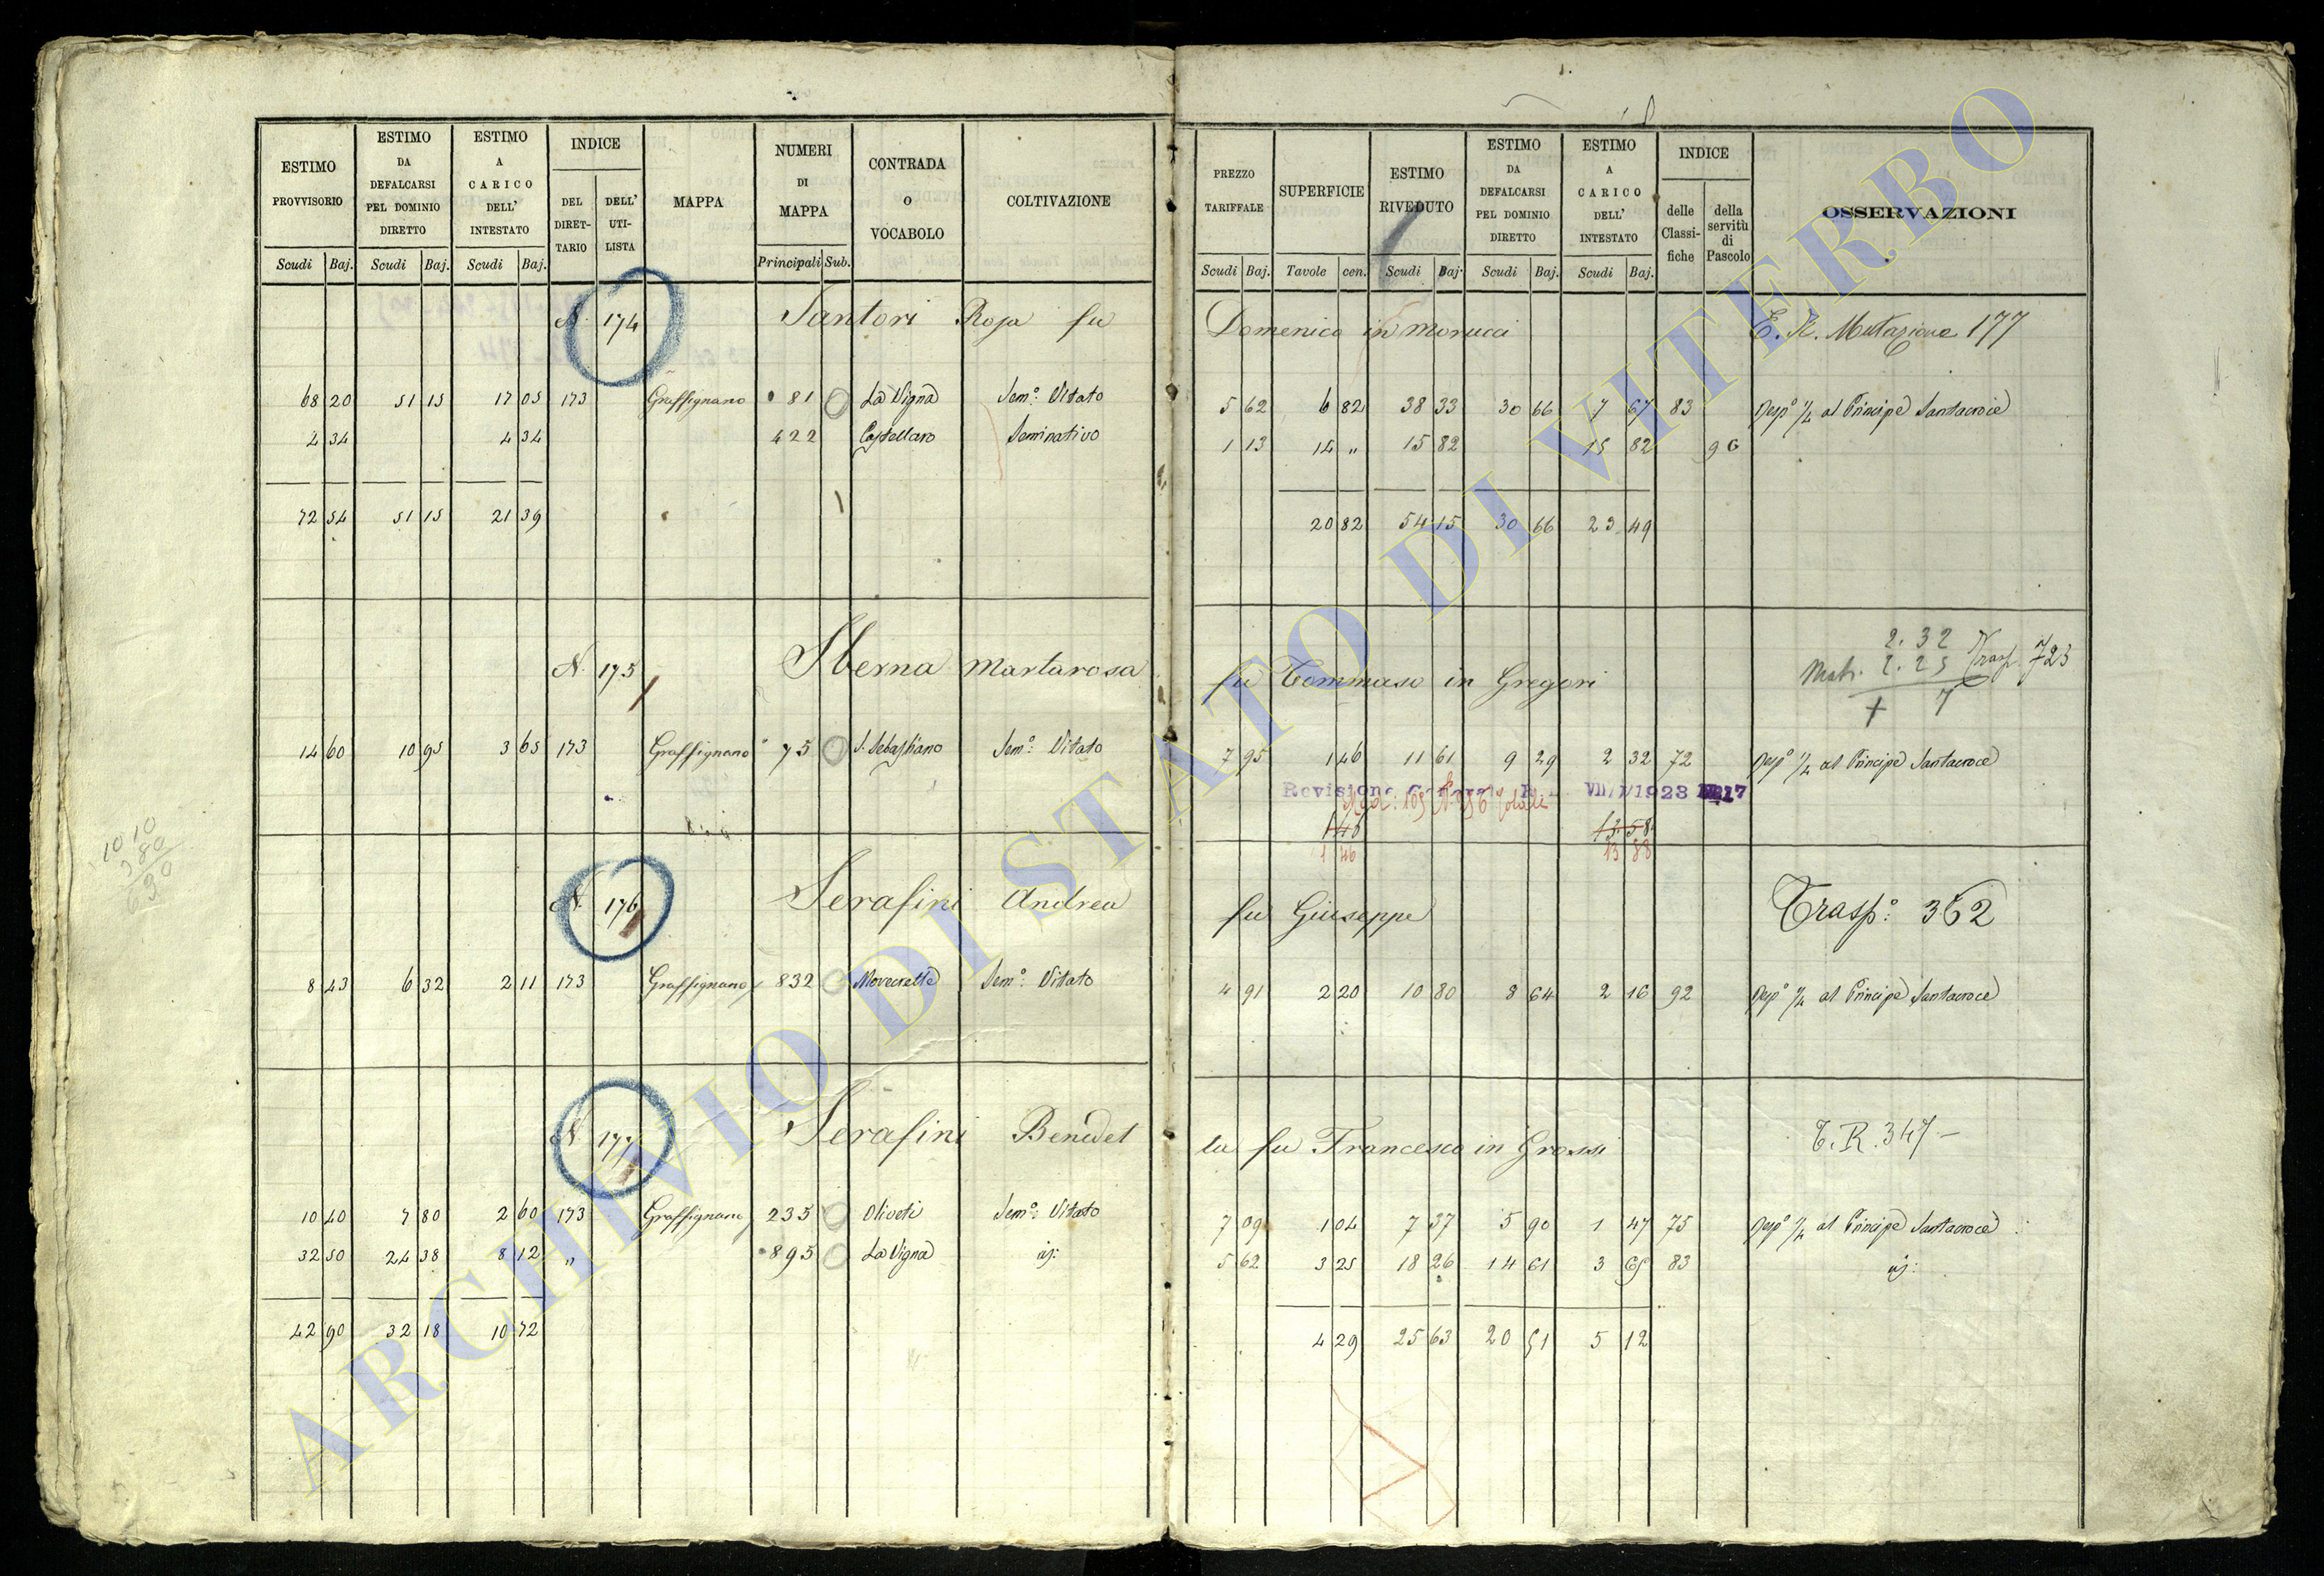 ESTIMO PROVVISORIO
Scudi Baj.
ESTIMO DA DEFALCARSI PEL DOMINIO DIRETTO
Scudi Baj.
ESTIMO A CARICO DELL' INTESTATO
Scudi Baj.
INDICE
DEL DIRET-TARIO
DELL' UTI-LISTA
MAPPA
NUMERI DI MAPPA
Principali Sub.
CONTRADA O VOCABOLO
COLTIVAZIONE
PREZZO TARIFFALE
Scudi Baj.
SUPERFICIE
Tavole cen.
ESTIMO RIVEDUTO
Scudi Baj.
ESTIMO DA DEFALCARSI PEL DOMINIO DIRETTO
Scudi Baj.
ESTIMO A CARICO DELL' INTESTATO
Scudi Baj.
INDICE
delle Classi-fiche
della servitù di Pascolo
OSSERVAZIONI
N. 174 Santori Rosa fu Domenico in Morucci T. R. Mutazione 177
68 20 51 15 17 05 173 Graffignano 81 La Vigna Sem.º Vitato 5 62 6 82 38 33 30 66 7 67 83 Risp.º 1/4 al Principe Santacroce
4 34 4 34 422 Castellaro Seminativo 1 13 14 " 15 82 15 82 96
72 54 51 15 21 39 20 82 54 15 30 66 23 49
N. 175 Sberna Martarosa fu Tommaso in Gregori
2. 32
2. 25 Trasp. 723
7
14 60 10 95 3 65 173 Graffignano 75 S. Sebastiano Sem.º Vitato 7 95 1 46 11 61 9 29 2 32 72 Risp.º 1/4 al Principe Santacroce
1 46 13 58
1 46 13 88
1010
380
630
N. 176 Serafini Andrea fu Giuseppe Trasp.º 362
8 43 6 32 2 11 173 Graffignano 832 Sem.º Vitato 4 91 2 20 10 80 8 64 2 16 92 Risp.º 1/4 al Principe Santacroce
N. 177 Serafini Benedetta fu Francesco in Grossi T. R. 347
10 40 7 80 2 60 173 Graffignano 235 Oliveti Sem.º Vitato 7 09 1 04 7 37 5 90 1 47 75 Risp.º 1/4 al Principe Santacroce
32 50 24 38 8 12 " 895 La Vigna id: 5 62 3 25 18 26 14 61 3 65 83 id:
42 90 32 18 10 72 4 29 25 63 20 51 5 12
ARCHIVIO DI STATO DI VITERBO